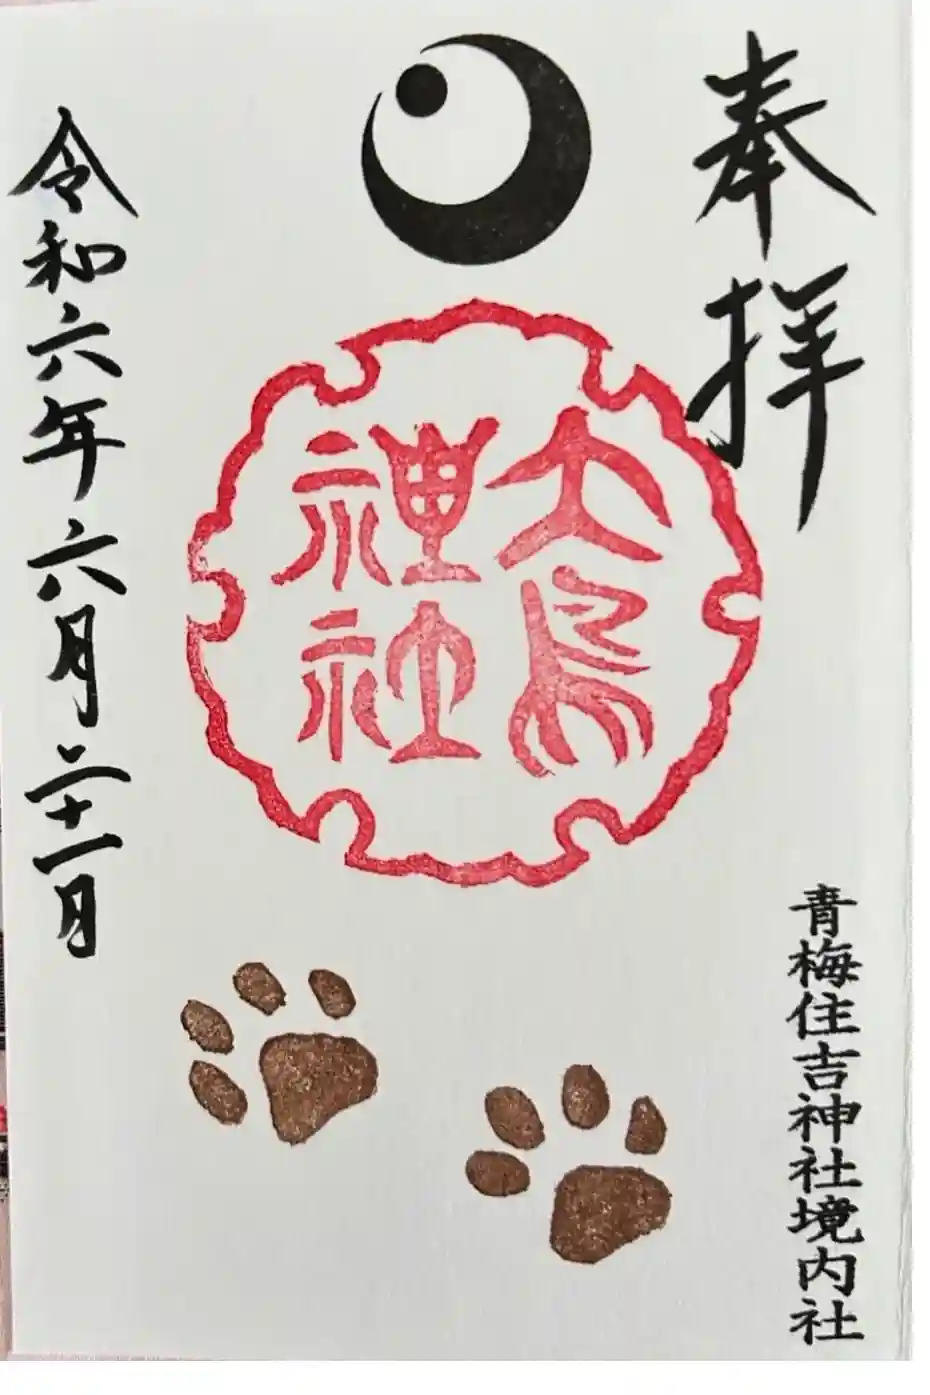 奉拝
青梅住吉神社境内社
大鳥
神社
令和六年六月二十一日